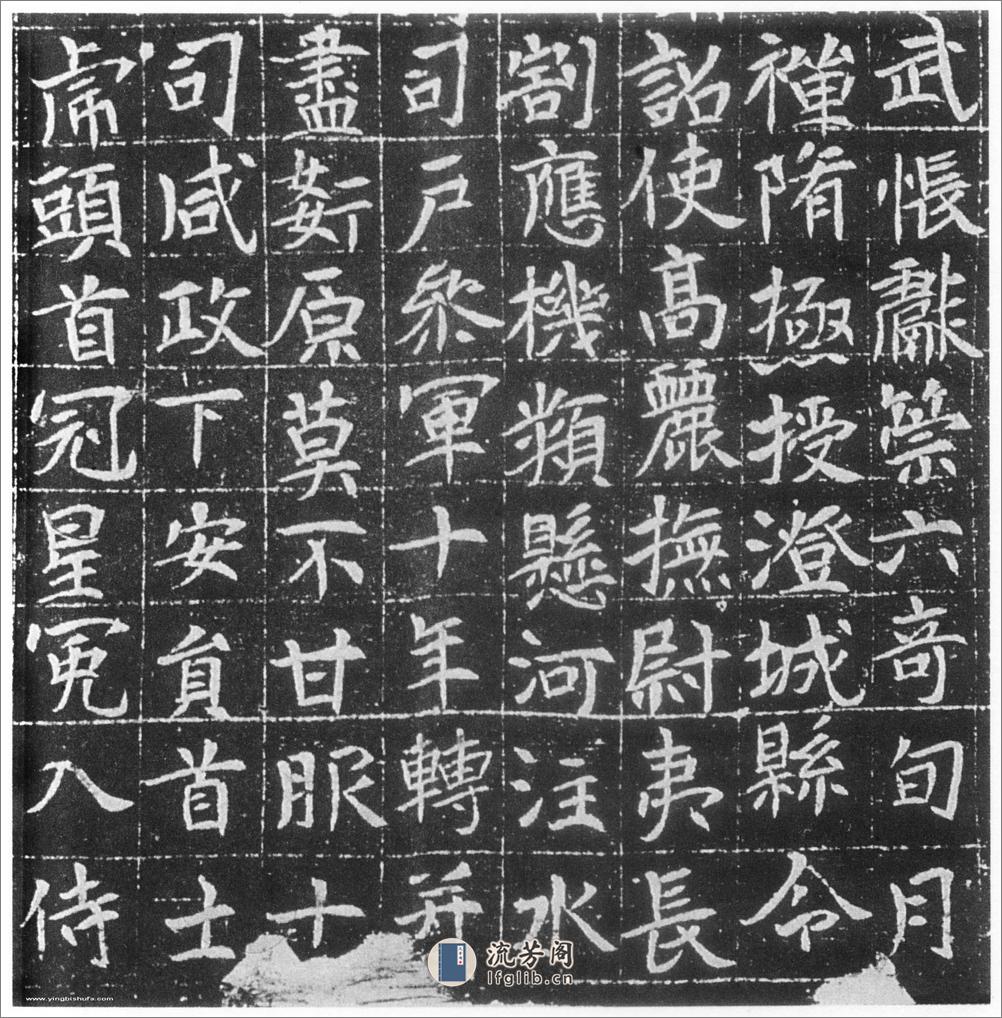 武帳獻筞六奇旬月
禪隋極授澄城縣令
詔使高麗撫尉夷長
割應機類懸河注水
司戶叅軍十年轉并
盡姧原莫不甘服十
司咸政下安貟首士
虎頭首冠皇冕入侍
流芳阁
lfglib.cn
www.yingbishufa.com